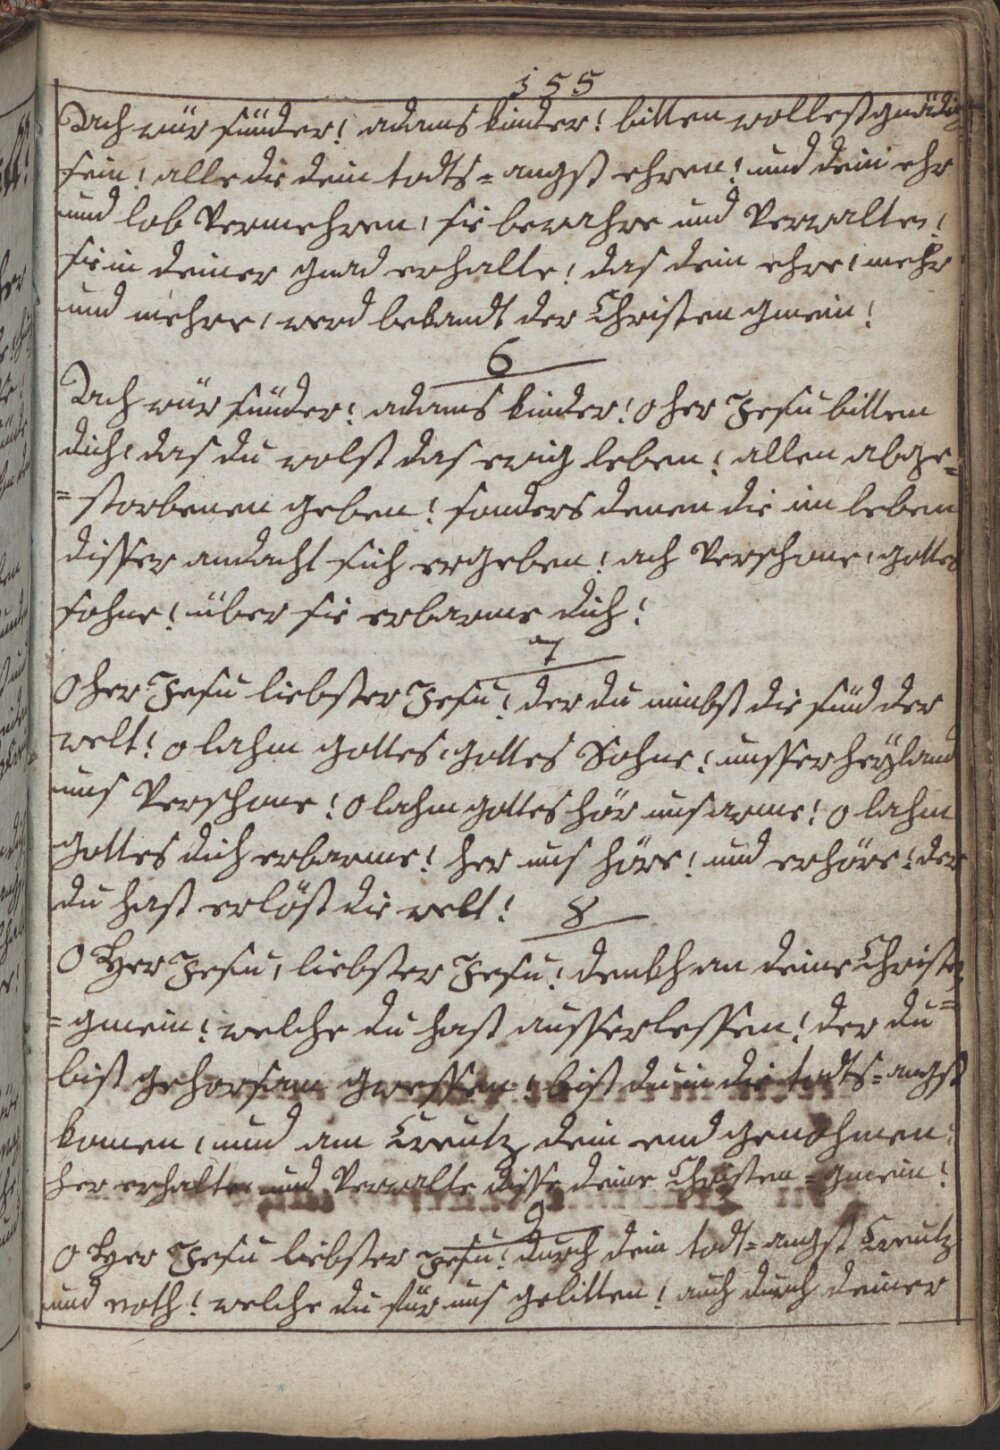 155
Ach wür sünder! adams kinder! bitten wollest gnädig
sein! alle die dein todts=angst ehren! und dein ehr
und lob vermehren, sie bewahre und verwalte!
sie in deiner gnad erhalte! das dein ehre, mehr
und mehre, werd bekandt der Christen gmein!
6
Ach wür sünder! adams kinder! O her Jesu bitten
dich, das du wolst das ewig leben! allen abge=
=storbenen geben! sonders denen die im leben
disser andacht sich ergeben! ach verschone, gottes
sohne! über sie erbarme dich!
7
O her Jesu liebster Jesu! der du nimbst die sünd der
welt! o lahm gottes, gottes Sohne! unsser heÿland
uns verschone! O lahm gottes hör uns arme! o lahm
gottes dich erbarme! her uns höre! und erhöre! der
du hast erlöst die welt!
8
O Her Jesu, liebster Jesu! denkh an deine Christen
=gmein! welche du hast ausserlessen! der du
bist gehorsam gwessen! bist du in die todts=angst
komen, und am Creutz dein end genohmen!
her erhalte und verwalte disse deine Christen=gmein!
9
O Her Jesu liebster Jesu! durch dein todt=angst Creutz
und noth! welche du für uns gelitten! auch durch deiner